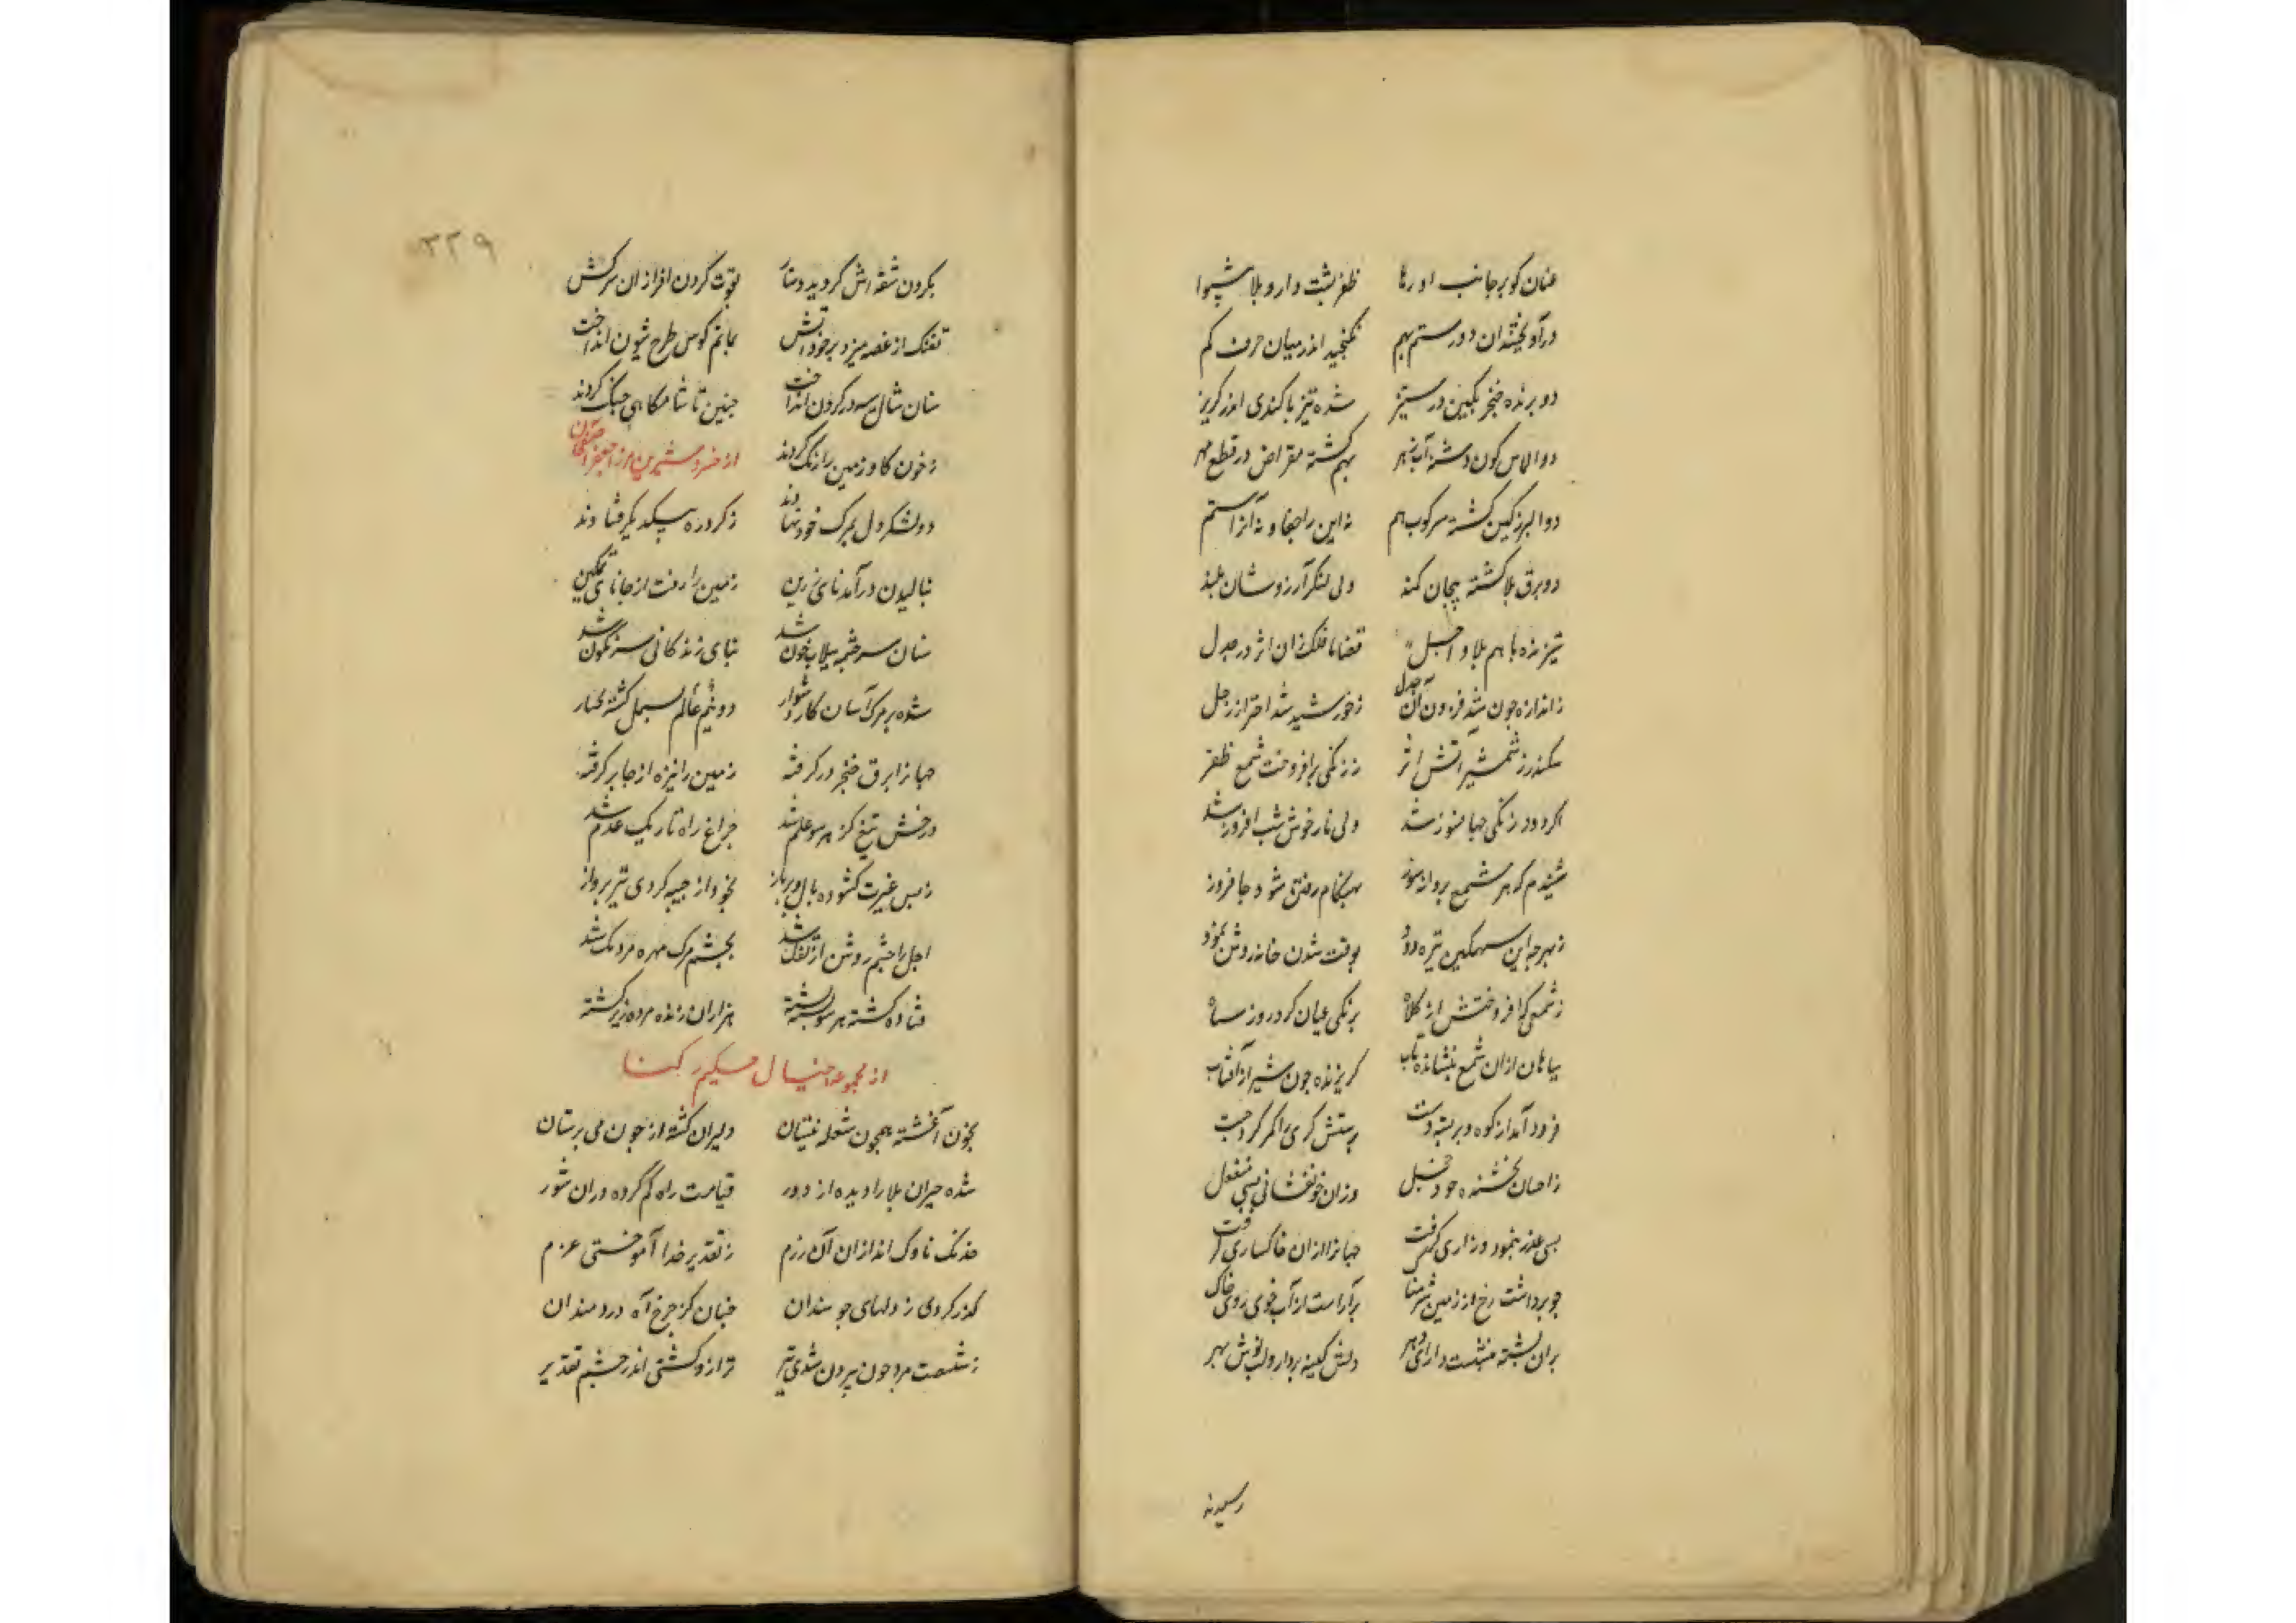 عنان کو بر جانب او رها ظفر پشت دار و بلا پیشوا
درآویختند آن دو رستم بهم نگنجید اندر میان حرف کم
دو برنده خنجر بکین در ستیز شده تیز با کندی اندر گریز
دو الماس کون دشنه آب زهر بهم کشته مقراض در قطع مهر
دو البرز کین کشته سرکوب هم نه این را جفا و نه آنرا ستم
دو برق بلا کشته پیچان کمند ولی لنکر آرزوشان بلند
ستیزنده با هم بلا و اجل قضا با فلک زان اثر در جدل
ز اندازه چون شد فزون آن جدل ز خورشید شد احتراز زحل
سکندر ز شمشیر آتش اثر ز زنکی برافروخت شمع ظفر
اکر دود زنکی جهانسوز شد ولی نار خوش شب افروز شد
شنیدم که هر شمع پروانه سوز بهنکام رفتن شود جافروز
ز بهر چه این سهمکین تیره دود بوقت شدن خانه روشن نمود
ز شمعی که افروختش از کلاه بزنکی عیان کرد روز سیاه
بیابان ازان شمع ننشانده تاب کریزنده چون شیر از آفتاب
فرود آمد از کوه و بر پشته دست پرستش کری را کمر کرد چست
ز احسان بخشنده خود خجل وزان خونفشانی بسی منفعل
بسی عذر بنمود و زاری کرفت جهانرا ازان خاکساری کرفت
چو برداشت رخ از زمین شرمناک برآراست از آب خوی روی خاک
بران پشته بنشست دارای دهر دلش کینه بردار و لب نوش بهر
رسیدند
۳۲۹
بکردن شقه اش کردید دستار بقوت کردن افرازان سرکش
تفنک از غصه میزد بر خود آتش بماتم کوس طرح شیون انداخت
سنان شال سیه در کردن انداخت چنین تا شامکاهی جنک کردند
ز خون کاو زمین را رنک کردند از خسرو شیرین میرزا جعفر آصفخان
دو لشکر دل بمرک خود نهادند ز کرد ره بیکدیکر فتادند
بنالیدن درآمد نای زرین زمین را رفت از جا پای تمکین
سنان سرچشمه سیلاب خون شد بنای زندکانی سرنکون شد
شده بر مرک آسان کار دشوار دو نیم عالم بسمل کشته یکبار
جهانرا برق خنجر در کرفته زمین را نیزه از جا بر کرفته
درخش تیغ کز هر سو علم شد چراغ راه تاریک عدم شد
ز بس غیرت کشوده بال و پر باز بخود از جیبه کردی تیر پرواز
اجل را چشم روشن از تفک شد بچشم مرک مهره مردمک شد
فتاده کشته هر سو پشته پشته هزاران زنده مرده زیر کشته
از مجموعه خیال حکیم رکنا
بخون آغشته همچون شعله نیستان دلیران کشته از خون می پرستان
شده حیران بلا را دیده از دور قیامت راه کم کرده دران شور
خدنک ناوک اندازان آن رزم ز تقدیر خدا آموختی عزم
کذر کردی ز دلهای چو سندان چنان کز چرخ آه دردمندان
ز شصت مرد چون بیرون شدی تیر ترازو کشتی اندر چشم تقدیر